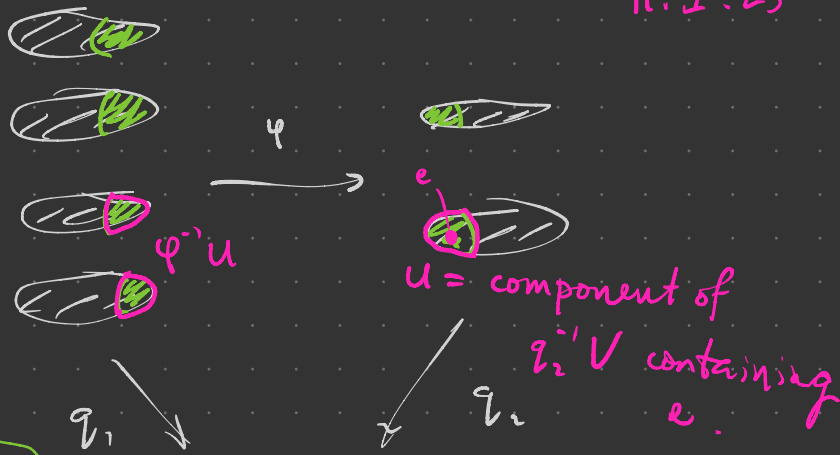 φ
e
φ⁻¹U
U = component of
q₂⁻¹ V containing
e.
q₁
q₂